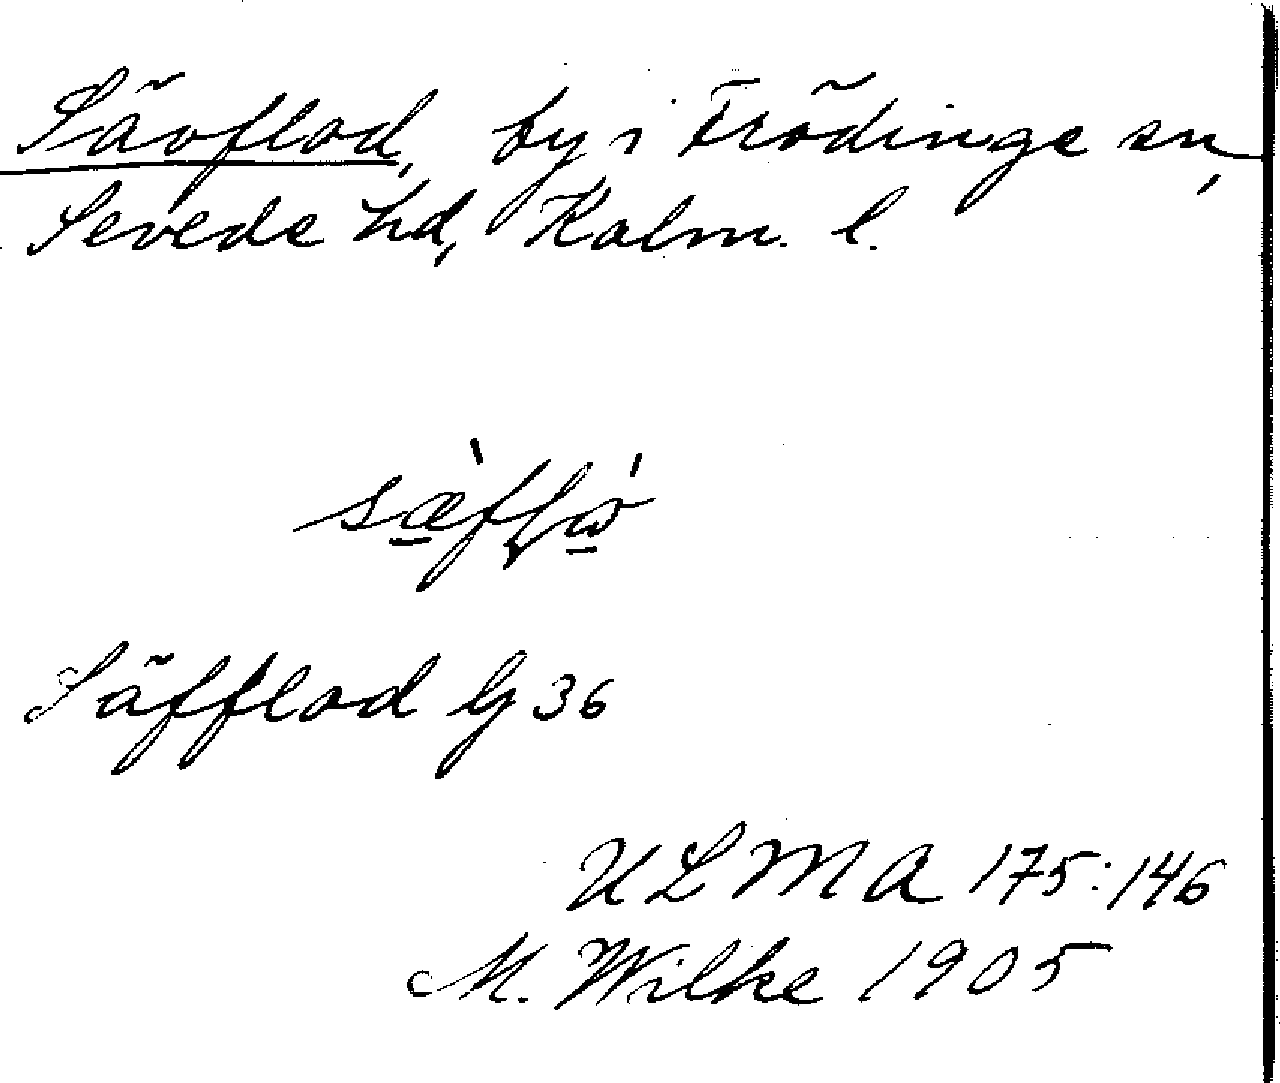 Sävflod, by i Frödinge sn,
Sevede hd, Kalm. l.
Säfflod G 36
ULMA 175:146
M. Wilke 1905